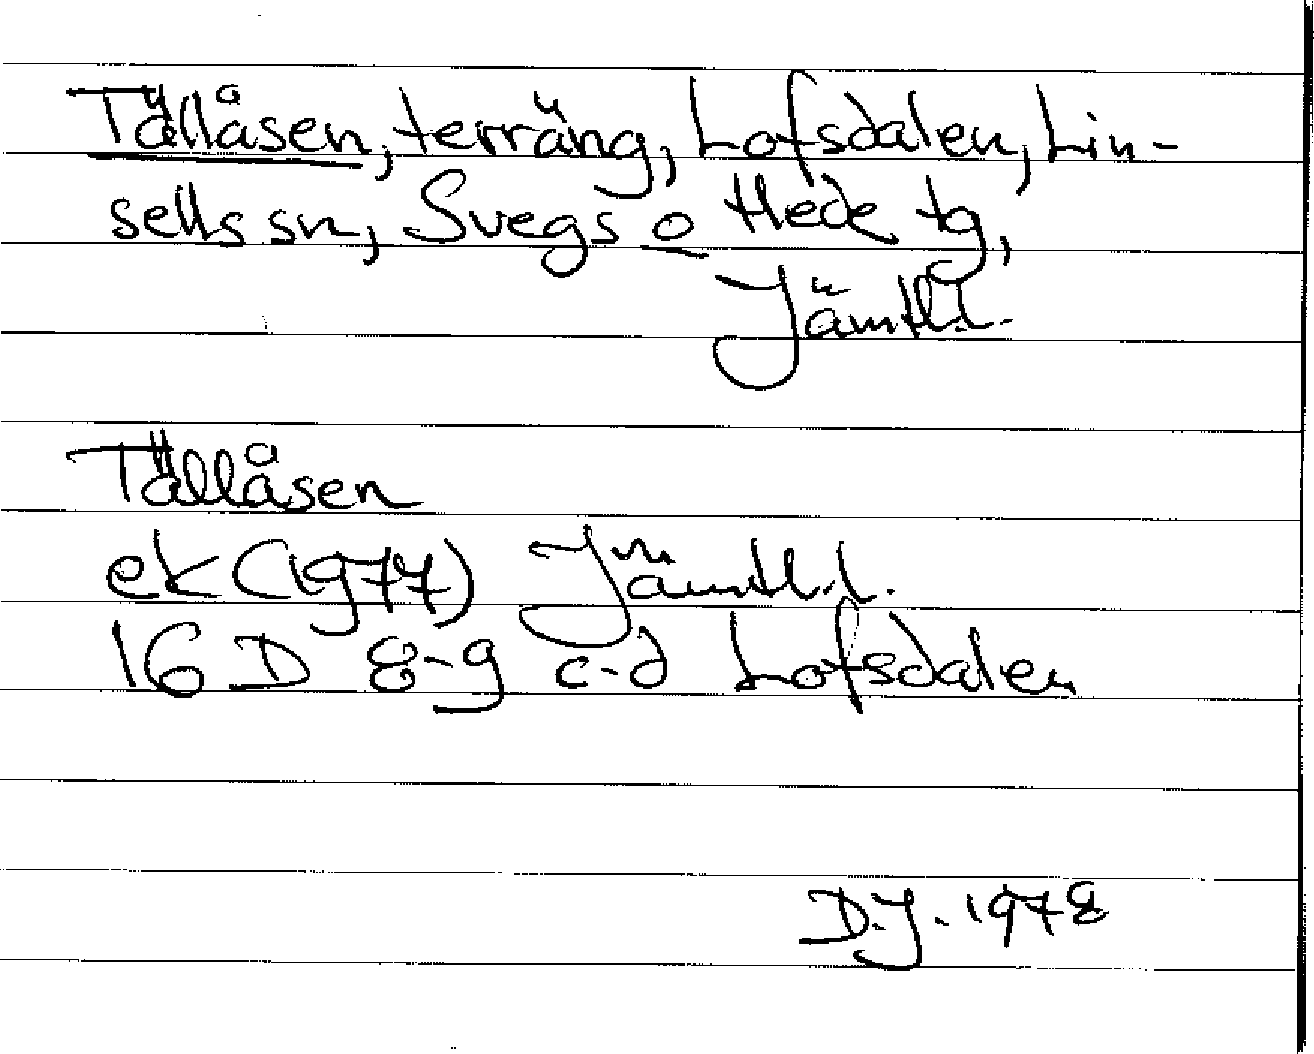 Tällåsen, terräng, Lofsdalen, Lin-
sells sn, Svegs o Hede tg,
Jämtl.l.
Tällåsen
ek (1977) Jämtl.l.
16 D 8-9 c-d Lofsdalen
D.J. 1978